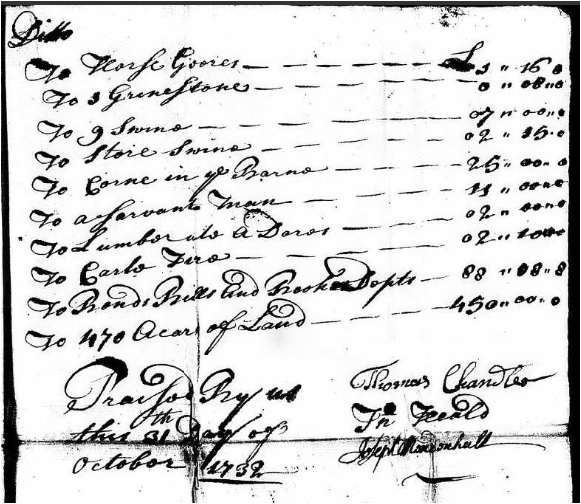 Ditto
To Horse Goores £ 3 " 16 0
To 3 Grinestone 0 " 08 " 0
To 9 Swine 07 " 00 " 0
To Store Swine 02 " 15 " 0
To Corne in ye Barne 25 " 00 " 0
To a Sarvant Man 11 " 00 " 0
To Lumber a Dores 02 " 00 " 0
To Carte 02 " 10
To Bonds Bills And Booke Depts 88 " 08 " 8
To 470 Acars of Land 450 " 00 " 0
Praised By us Thomas Chandler
this 31th Day of Jn Heald
October 1732 Joseph Mendenhall